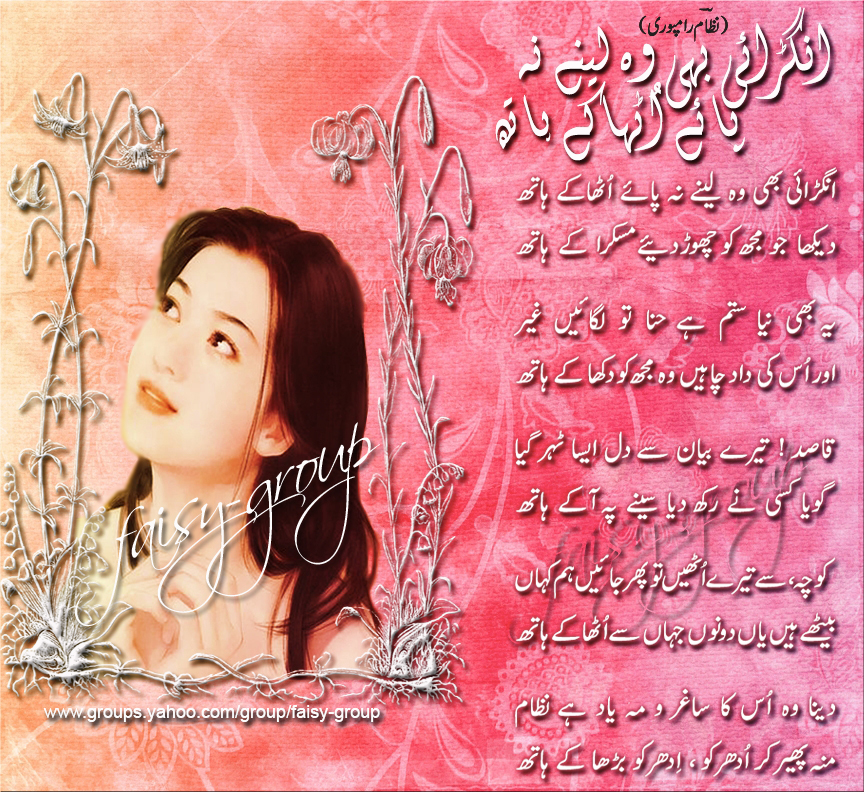 (نظام رامپوری)
انگڑائی بھی وہ لینے نہ
پائے اُٹھا کے ہاتھ
انگڑائی بھی وہ لینے نہ پائے اُٹھا کے ہاتھ
دیکھا جو مجھ کو چھوڑ دیئے مسکرا کے ہاتھ
یہ بھی نیا ستم ہے حنا تو لگائیں غیر
اور اُس کی داد چاہیں وہ مجھ کو دکھا کے ہاتھ
قاصد! تیرے بیان سے دل ایسا ٹہر گیا
گویا کسی نے رکھ دیا سینے پہ آ کے ہاتھ
کوچہ، سے تیرے اُٹھیں تو پھر جائیں ہم کہاں
بیٹھے ہیں یاں دونوں جہاں سے اُٹھا کے ہاتھ
دینا وہ اُس کا ساغر و مہ یاد ہے نظام
منہ پھیر کر اُدھر کو ، اِدھر کو بڑھا کے ہاتھ
faisy-group
faisy group
www.groups.yahoo.com/group/faisy-group